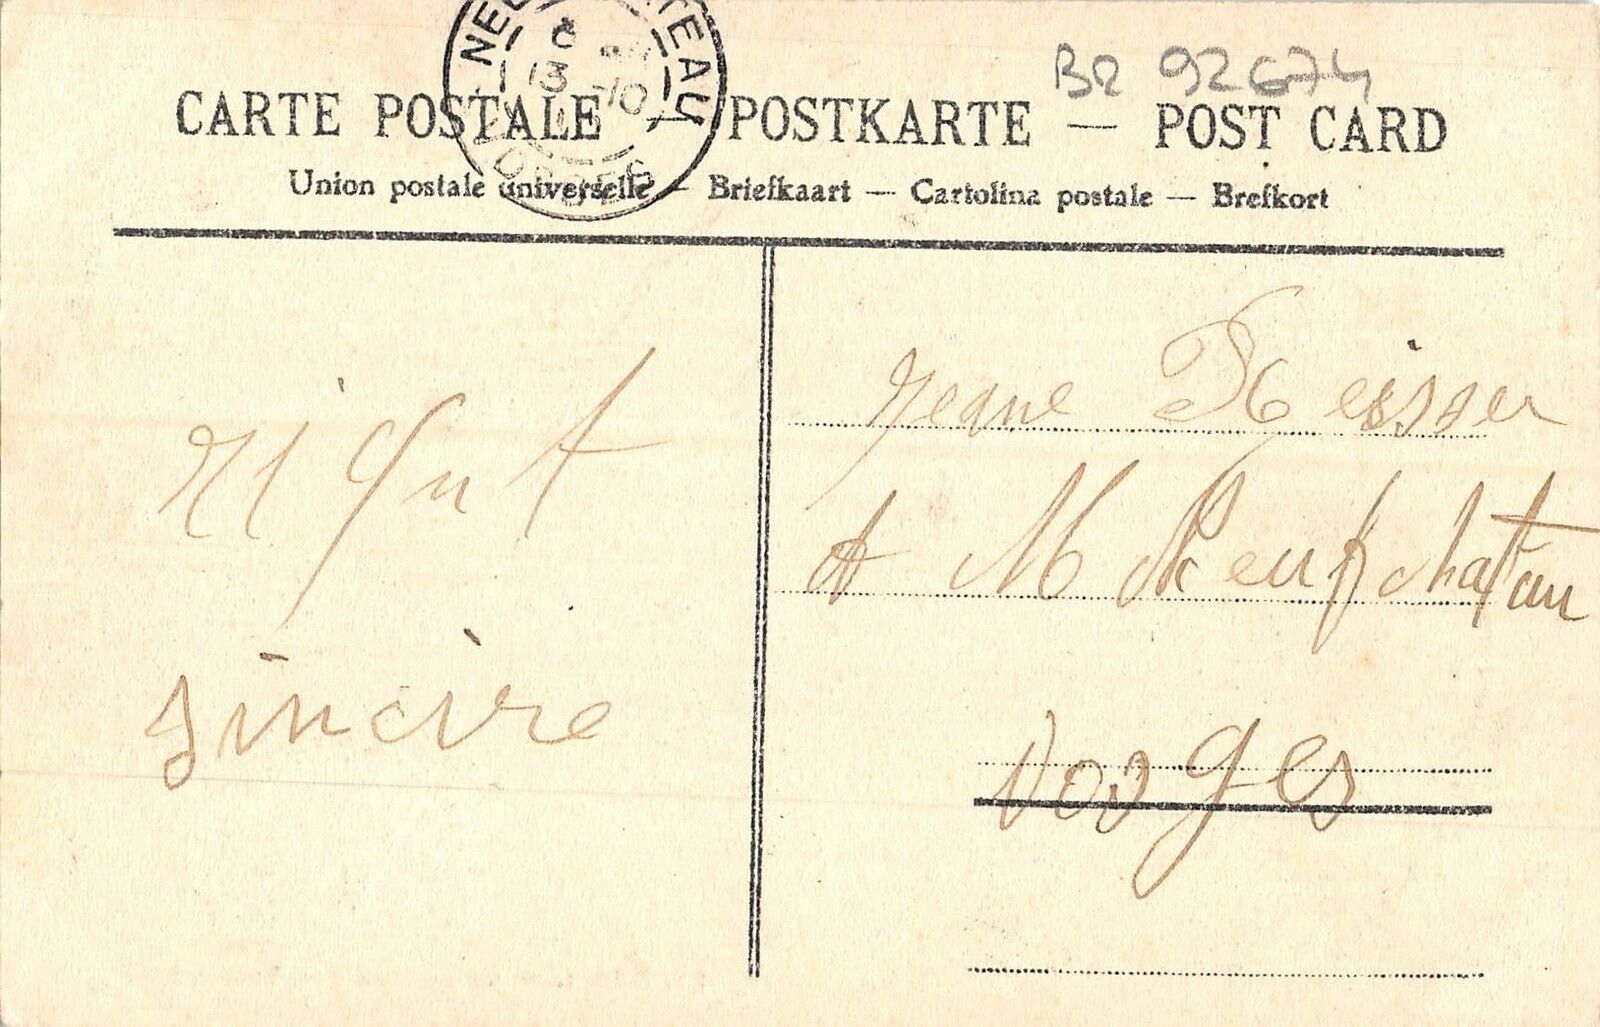 NEUFCHATEAU
8
13 -10
VOSGES
B2 92674
CARTE POSTALE — POSTKARTE — POST CARD
Union postale universelle — Briefkaart — Cartolina postale — Brefkort
sincire
Jeane Reisser
A M Neufchatau
Vosges